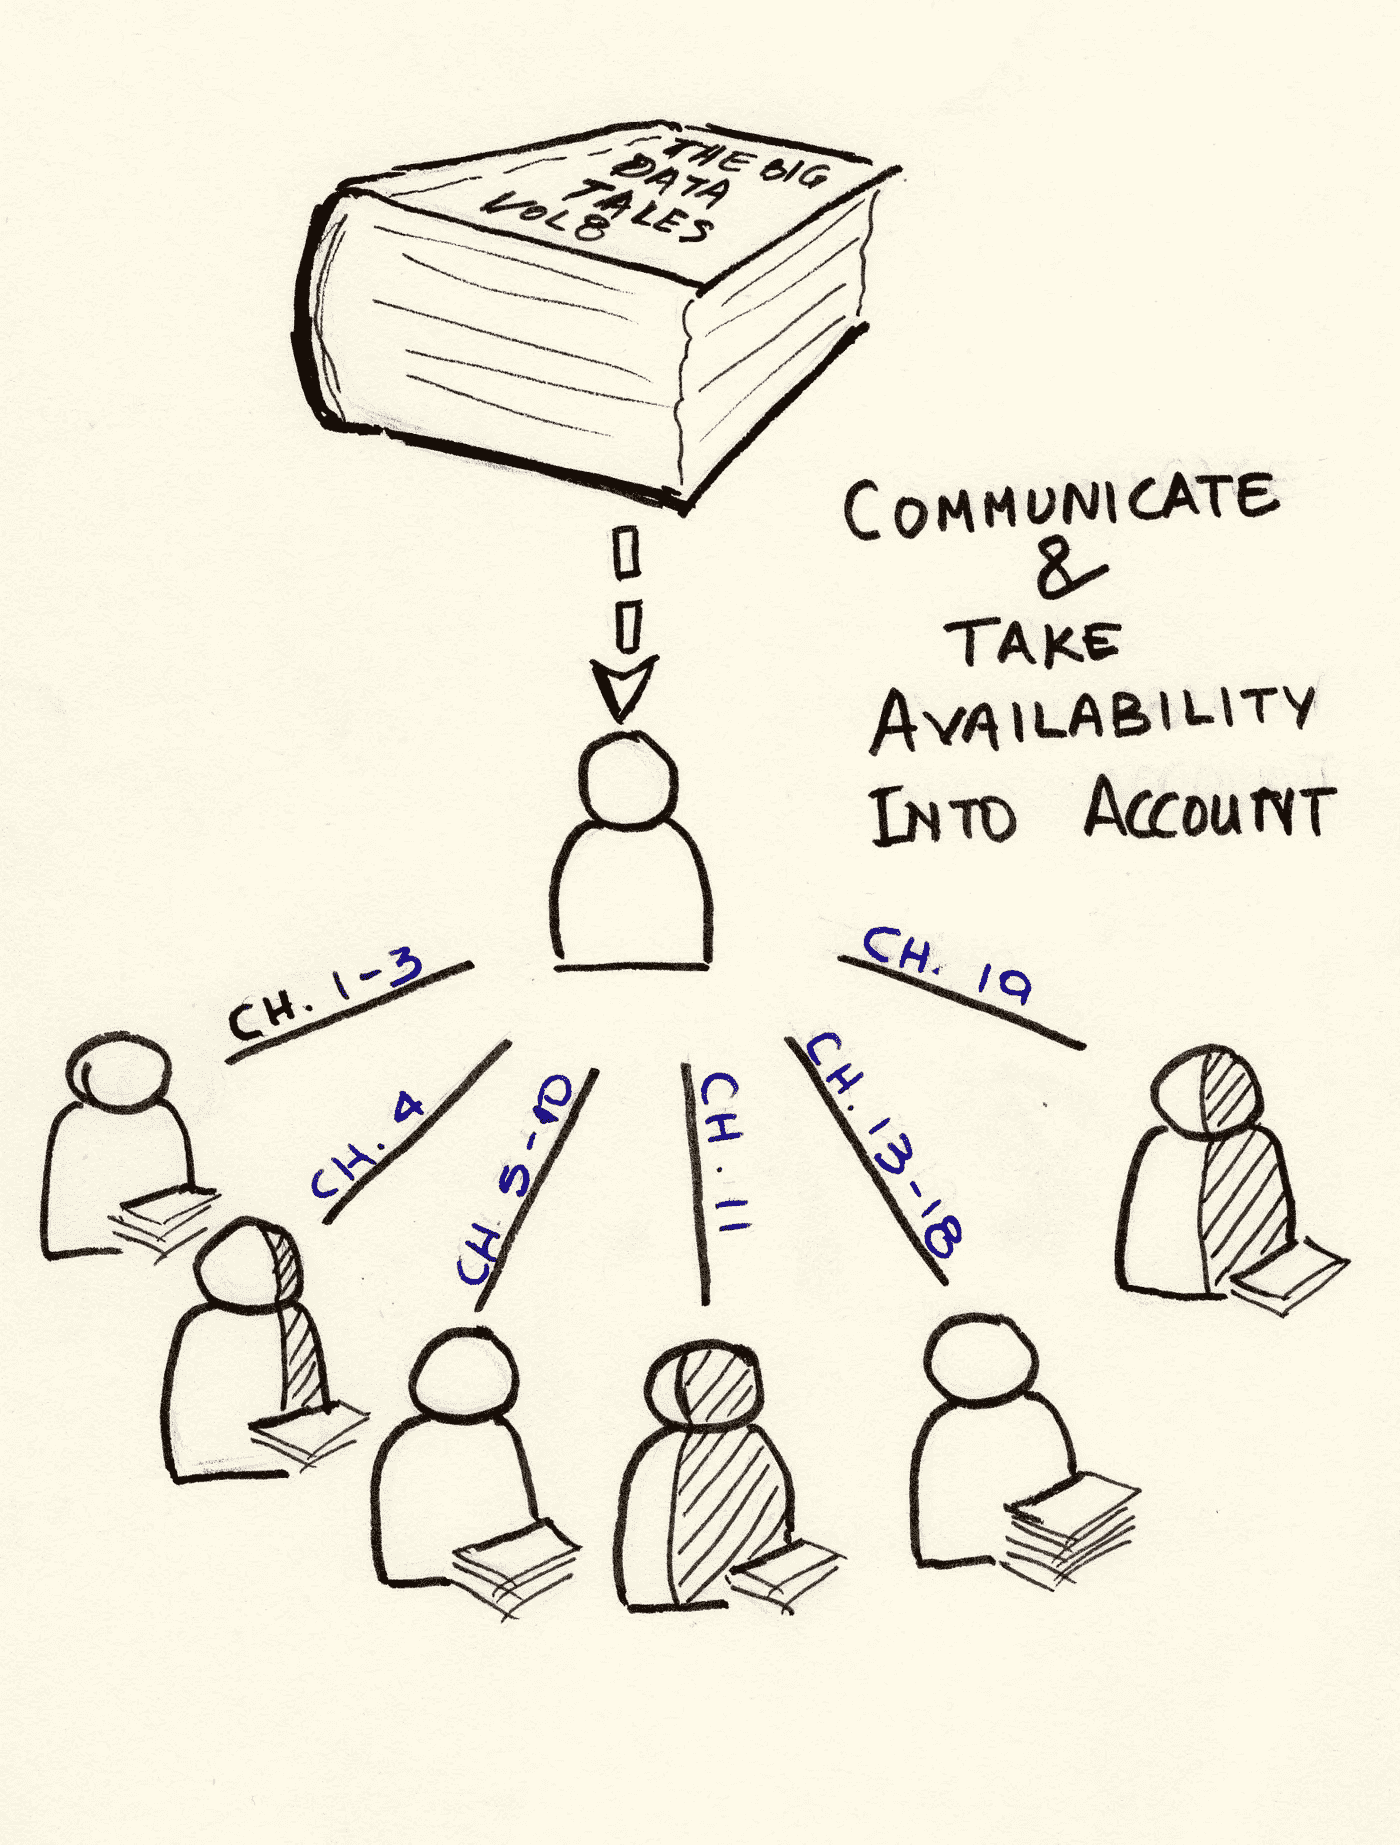 THE BIG
DATA
TALES
VOL 8
COMMUNICATE
&
TAKE
AVAILABILITY
INTO ACCOUNT
CH. 1-3
CH. 4
CH. 5-10
CH. 11
CH. 13-18
CH. 19